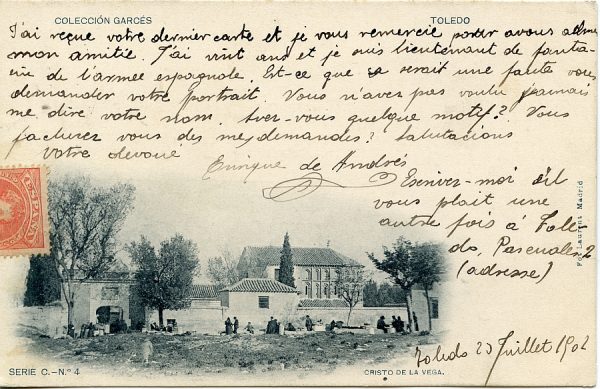 COLECCIÓN GARCÉS
TOLEDO
J'ai reçue votre dernier carte et je vous remercie porter avous
mon amitié. J'ai vint ans et je suis lieutenant de fantia-
rie de l'armee espagnole. Est-ce que sa serait une faute vous
demander votre portrait. Vous n'avez pas voulu jamais
me dire votre nom. Avez-vous quelque motif? Vous
facturez vous des mes demandes? Salutacions
Votre devoué
Enrique de Andrés
Escrivez-moi s'il
vous plait une
autre fois à Tole
do, Pascuales 2
(adresse)
Fot Laurent Madrid
Toledo 25 Juillet 1902
SERIE C.-N.º 4
CRISTO DE LA VEGA.